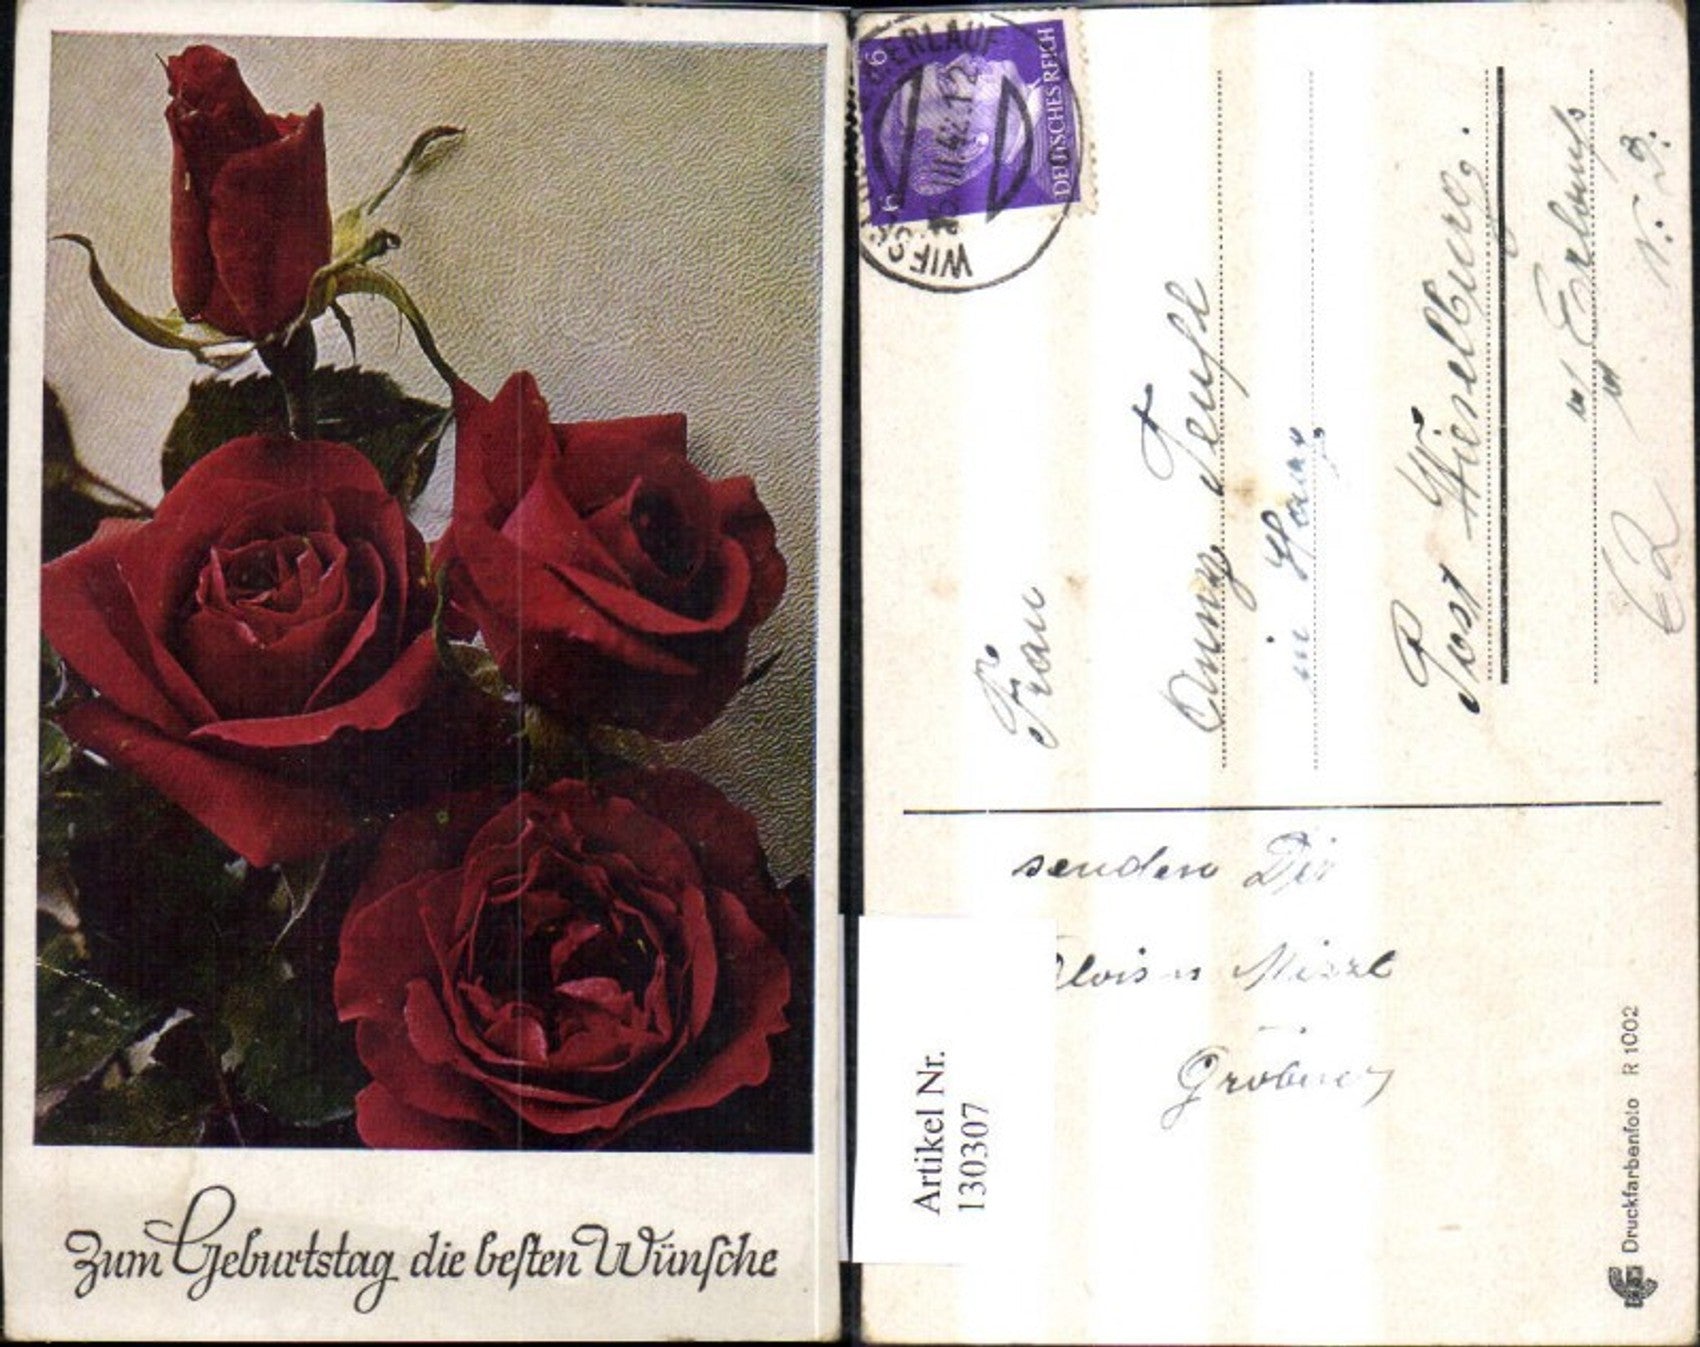 Zum Geburtstag die beſten Wünſche
6
6
DEUTSCHES REICH
ERLAUF
III 42.12
WIES
Frau
Anny Teufl
in Haag
Post Wieselburg.
a/ Erlauf
N. D.
senden Dir
Alois u Mizzl
Artikel Nr.
130307
Druckfarbenfoto R 1002